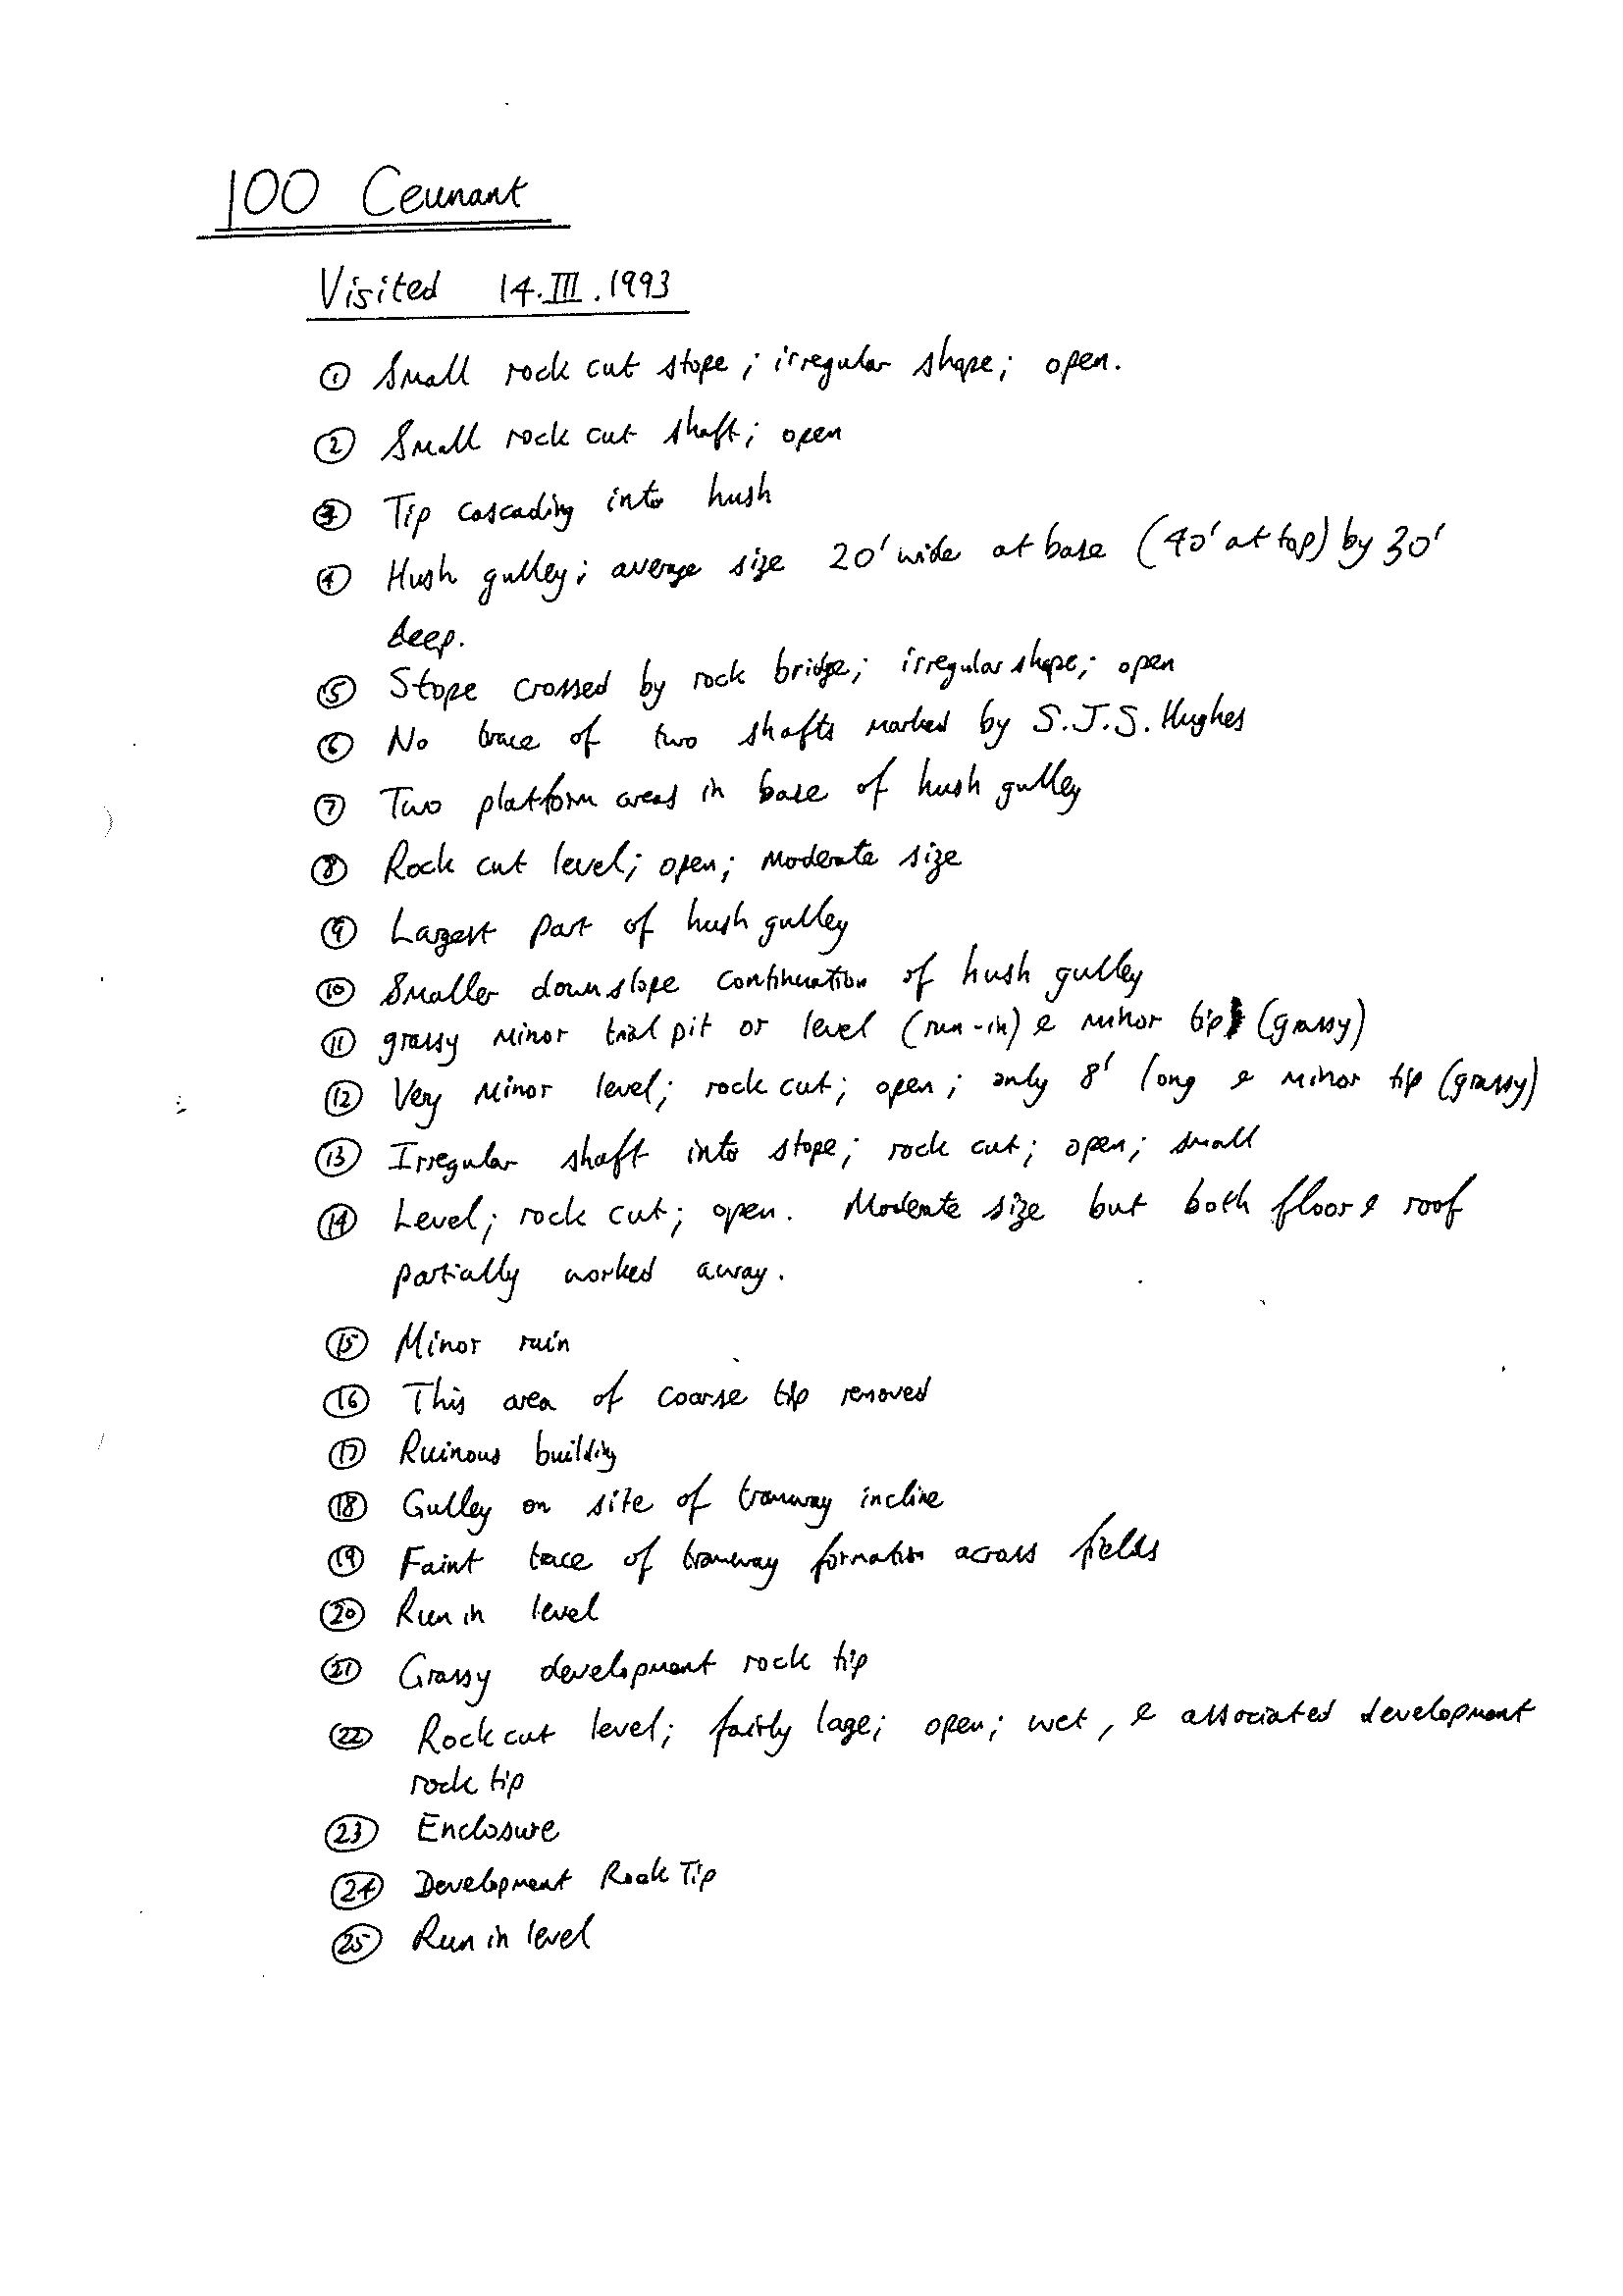 100 Ceunant
Visited 14.III.1993
① Small rock cut stope; irregular shape; open.
② Small rock cut shaft; open
③ Tip cascading into hush
④ Hush gulley; average size 20' wide at base (40' at top) by 30'
deep.
⑤ Stope crossed by rock bridge; irregular shape; open
⑥ No trace of two shafts marked by S.J.S. Hughes
⑦ Two platform areas in base of hush gulley
⑧ Rock cut level; open; moderate size
⑨ Largest part of hush gulley
⑩ Smaller downslope continuation of hush gulley
⑪ grassy minor trial pit or level (run-in) & minor tip (grassy)
⑫ Very minor level; rock cut; open; only 8' long & minor tip (grassy)
⑬ Irregular shaft into stope; rock cut; open; small
⑭ Level; rock cut; open. Moderate size but both floor & roof
partially worked away.
⑮ Minor ruin
⑯ This area of coarse tip removed
⑰ Ruinous building
⑱ Gulley on site of tramway incline
⑲ Faint trace of tramway formation across fields
⑳ Run in level
㉑ Grassy development rock tip
㉒ Rock cut level; fairly large; open; wet, & associated development
rock tip
㉓ Enclosure
㉔ Development Rock Tip
㉕ Run in level